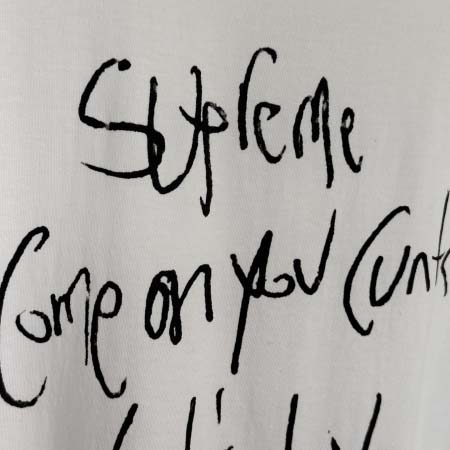 Supreme
Come on you Cunts